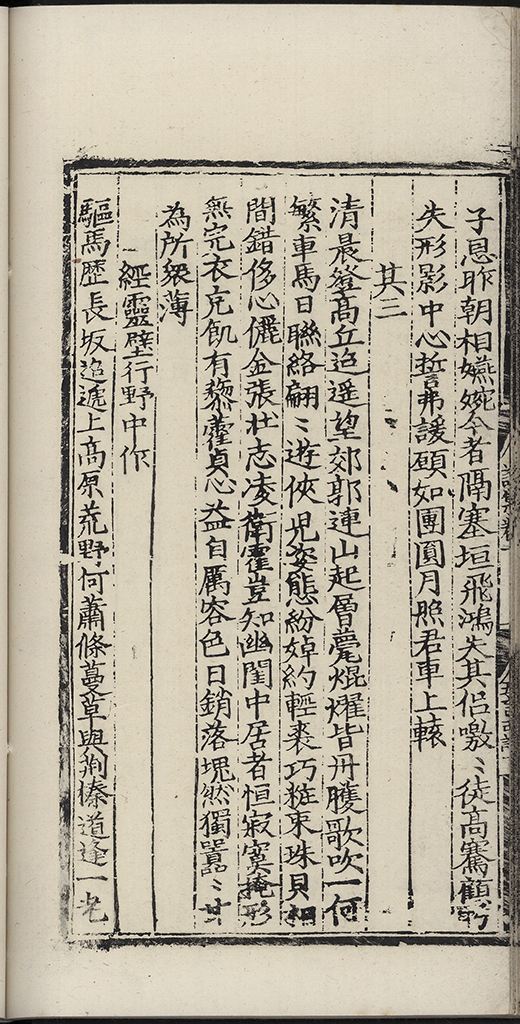 子恩昨朝相嬿婉今者隔塞垣飛鴻失其侶噭〻徒高騫顧
失形影中心誓弗諼願如團圓月照君車上轅
其三
清晨登高丘迢遥望郊郭連山起層甍焜燿皆丹雘歌吹一何
繁車馬日聯絡翩〻遊俠兒姿態紛婥約輕裘巧粧束珠貝相
間錯侈心儷金張壮志凌衛霍豈知幽閨中居者恒寂寞掩形
無完衣充飢有藜藿貞心益自厲容色日銷落塊然獨囂〻甘
為所親薄
經靈壁行野中作
驅馬歷長坂迢遞上高原荒野何蕭條蔓草與荆榛道逢一老